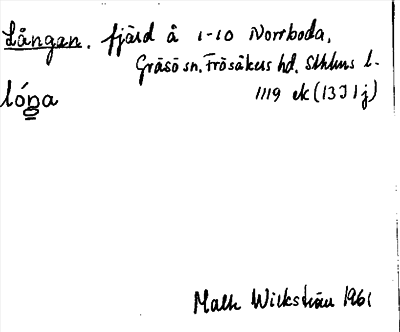 Långan. fjärd å 1-10 Norrboda,
Gräsö sn. Frösåkers hd. Sthlms l.
lóna
1119 ek (13J1j)
Wikström 1961